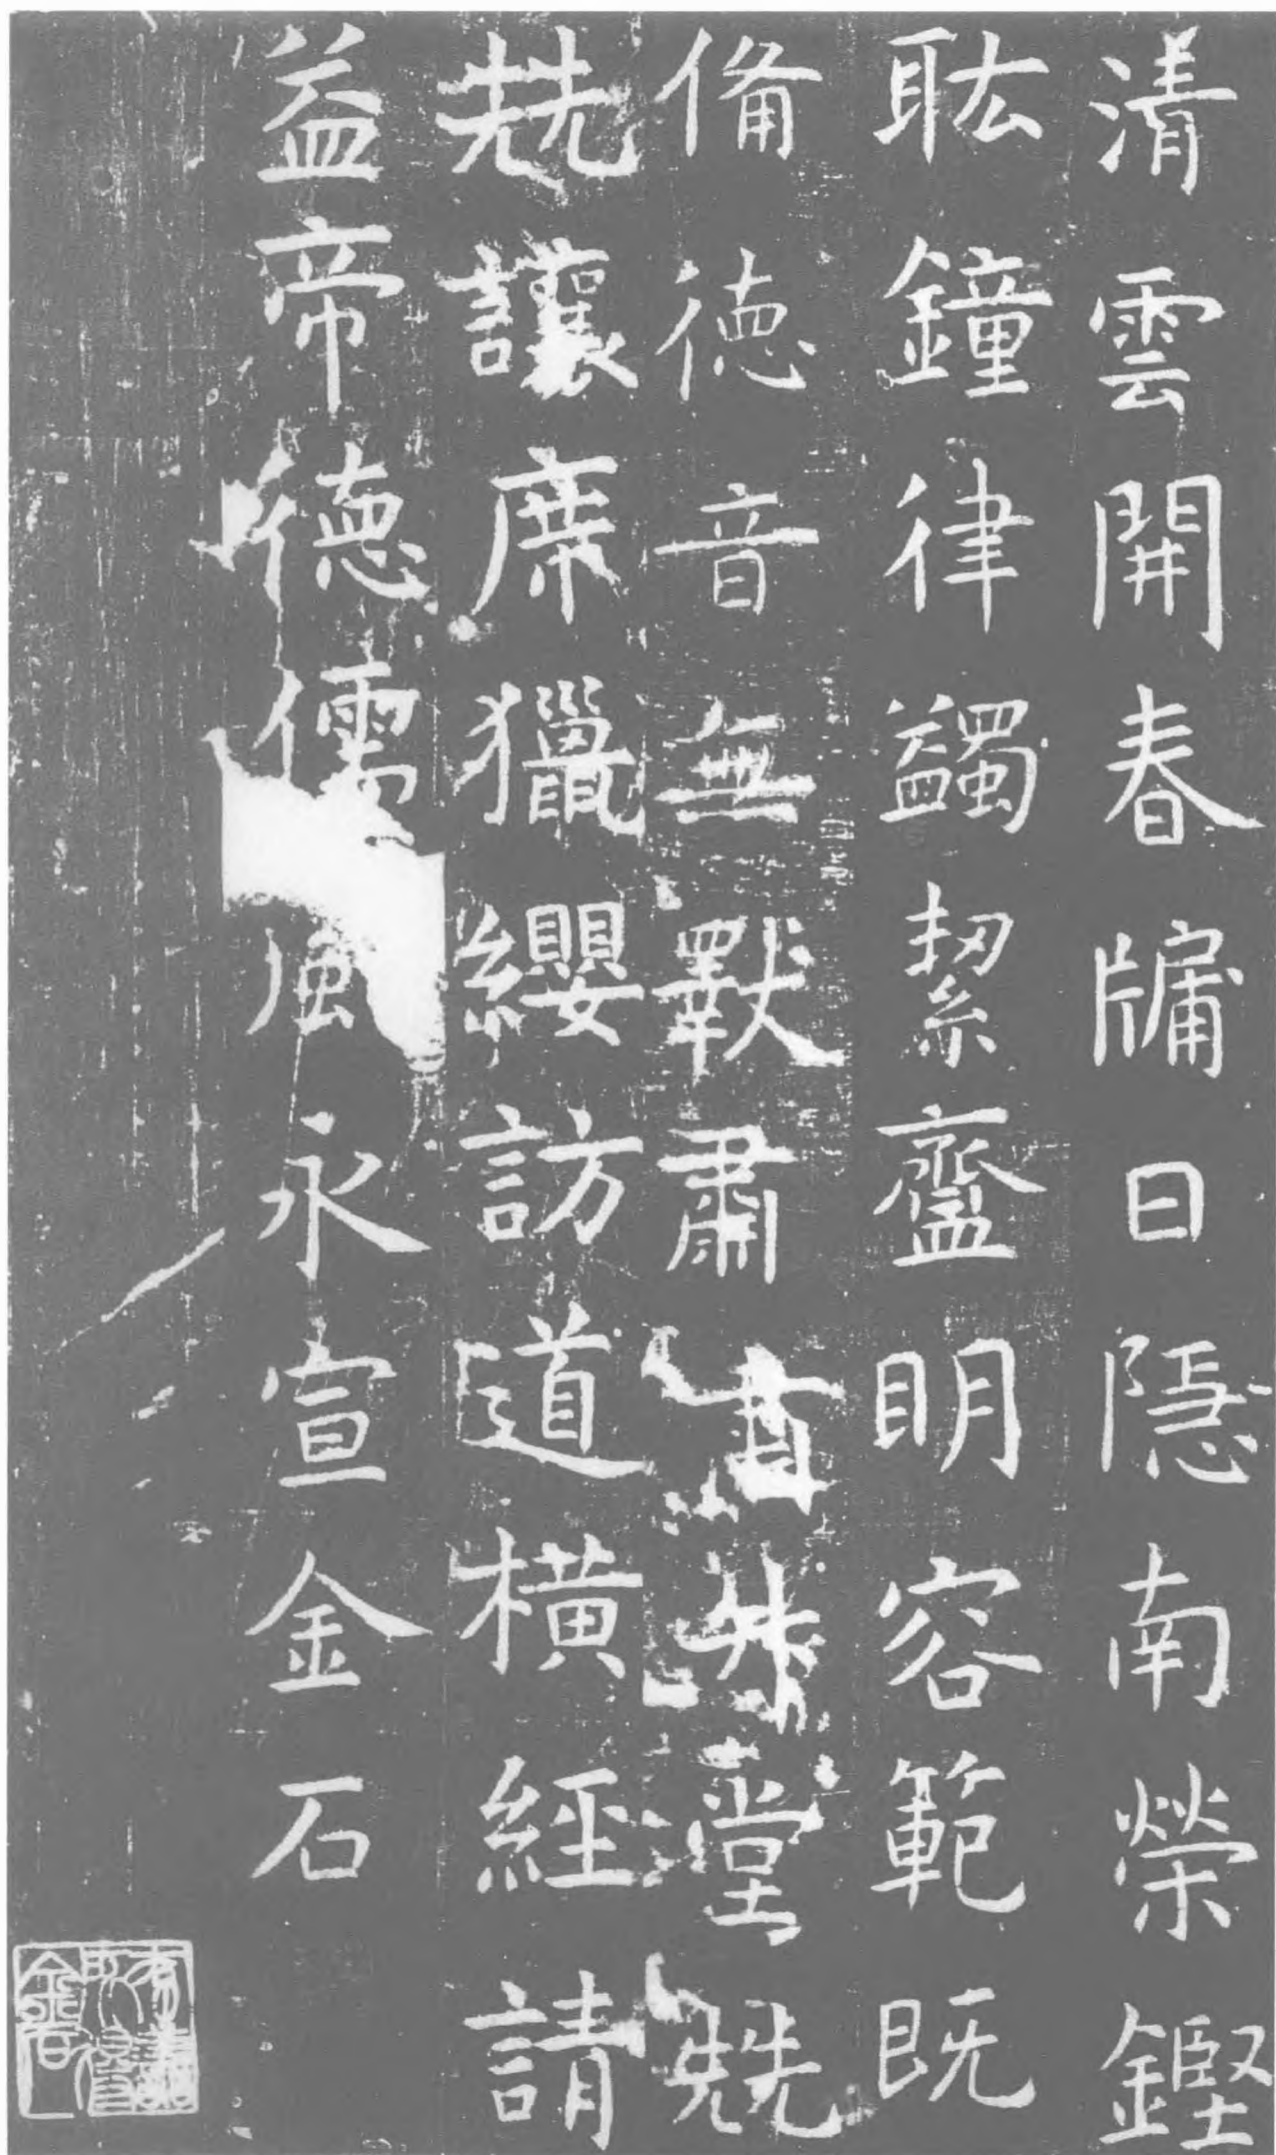 清雲開春牖日隱南榮鏗
耾鐘律蠲絜齋明容範既
備德音無斁肅肅升堂兟
兟讓席獵纓訪道橫經請
益帝德儒風永宣金石